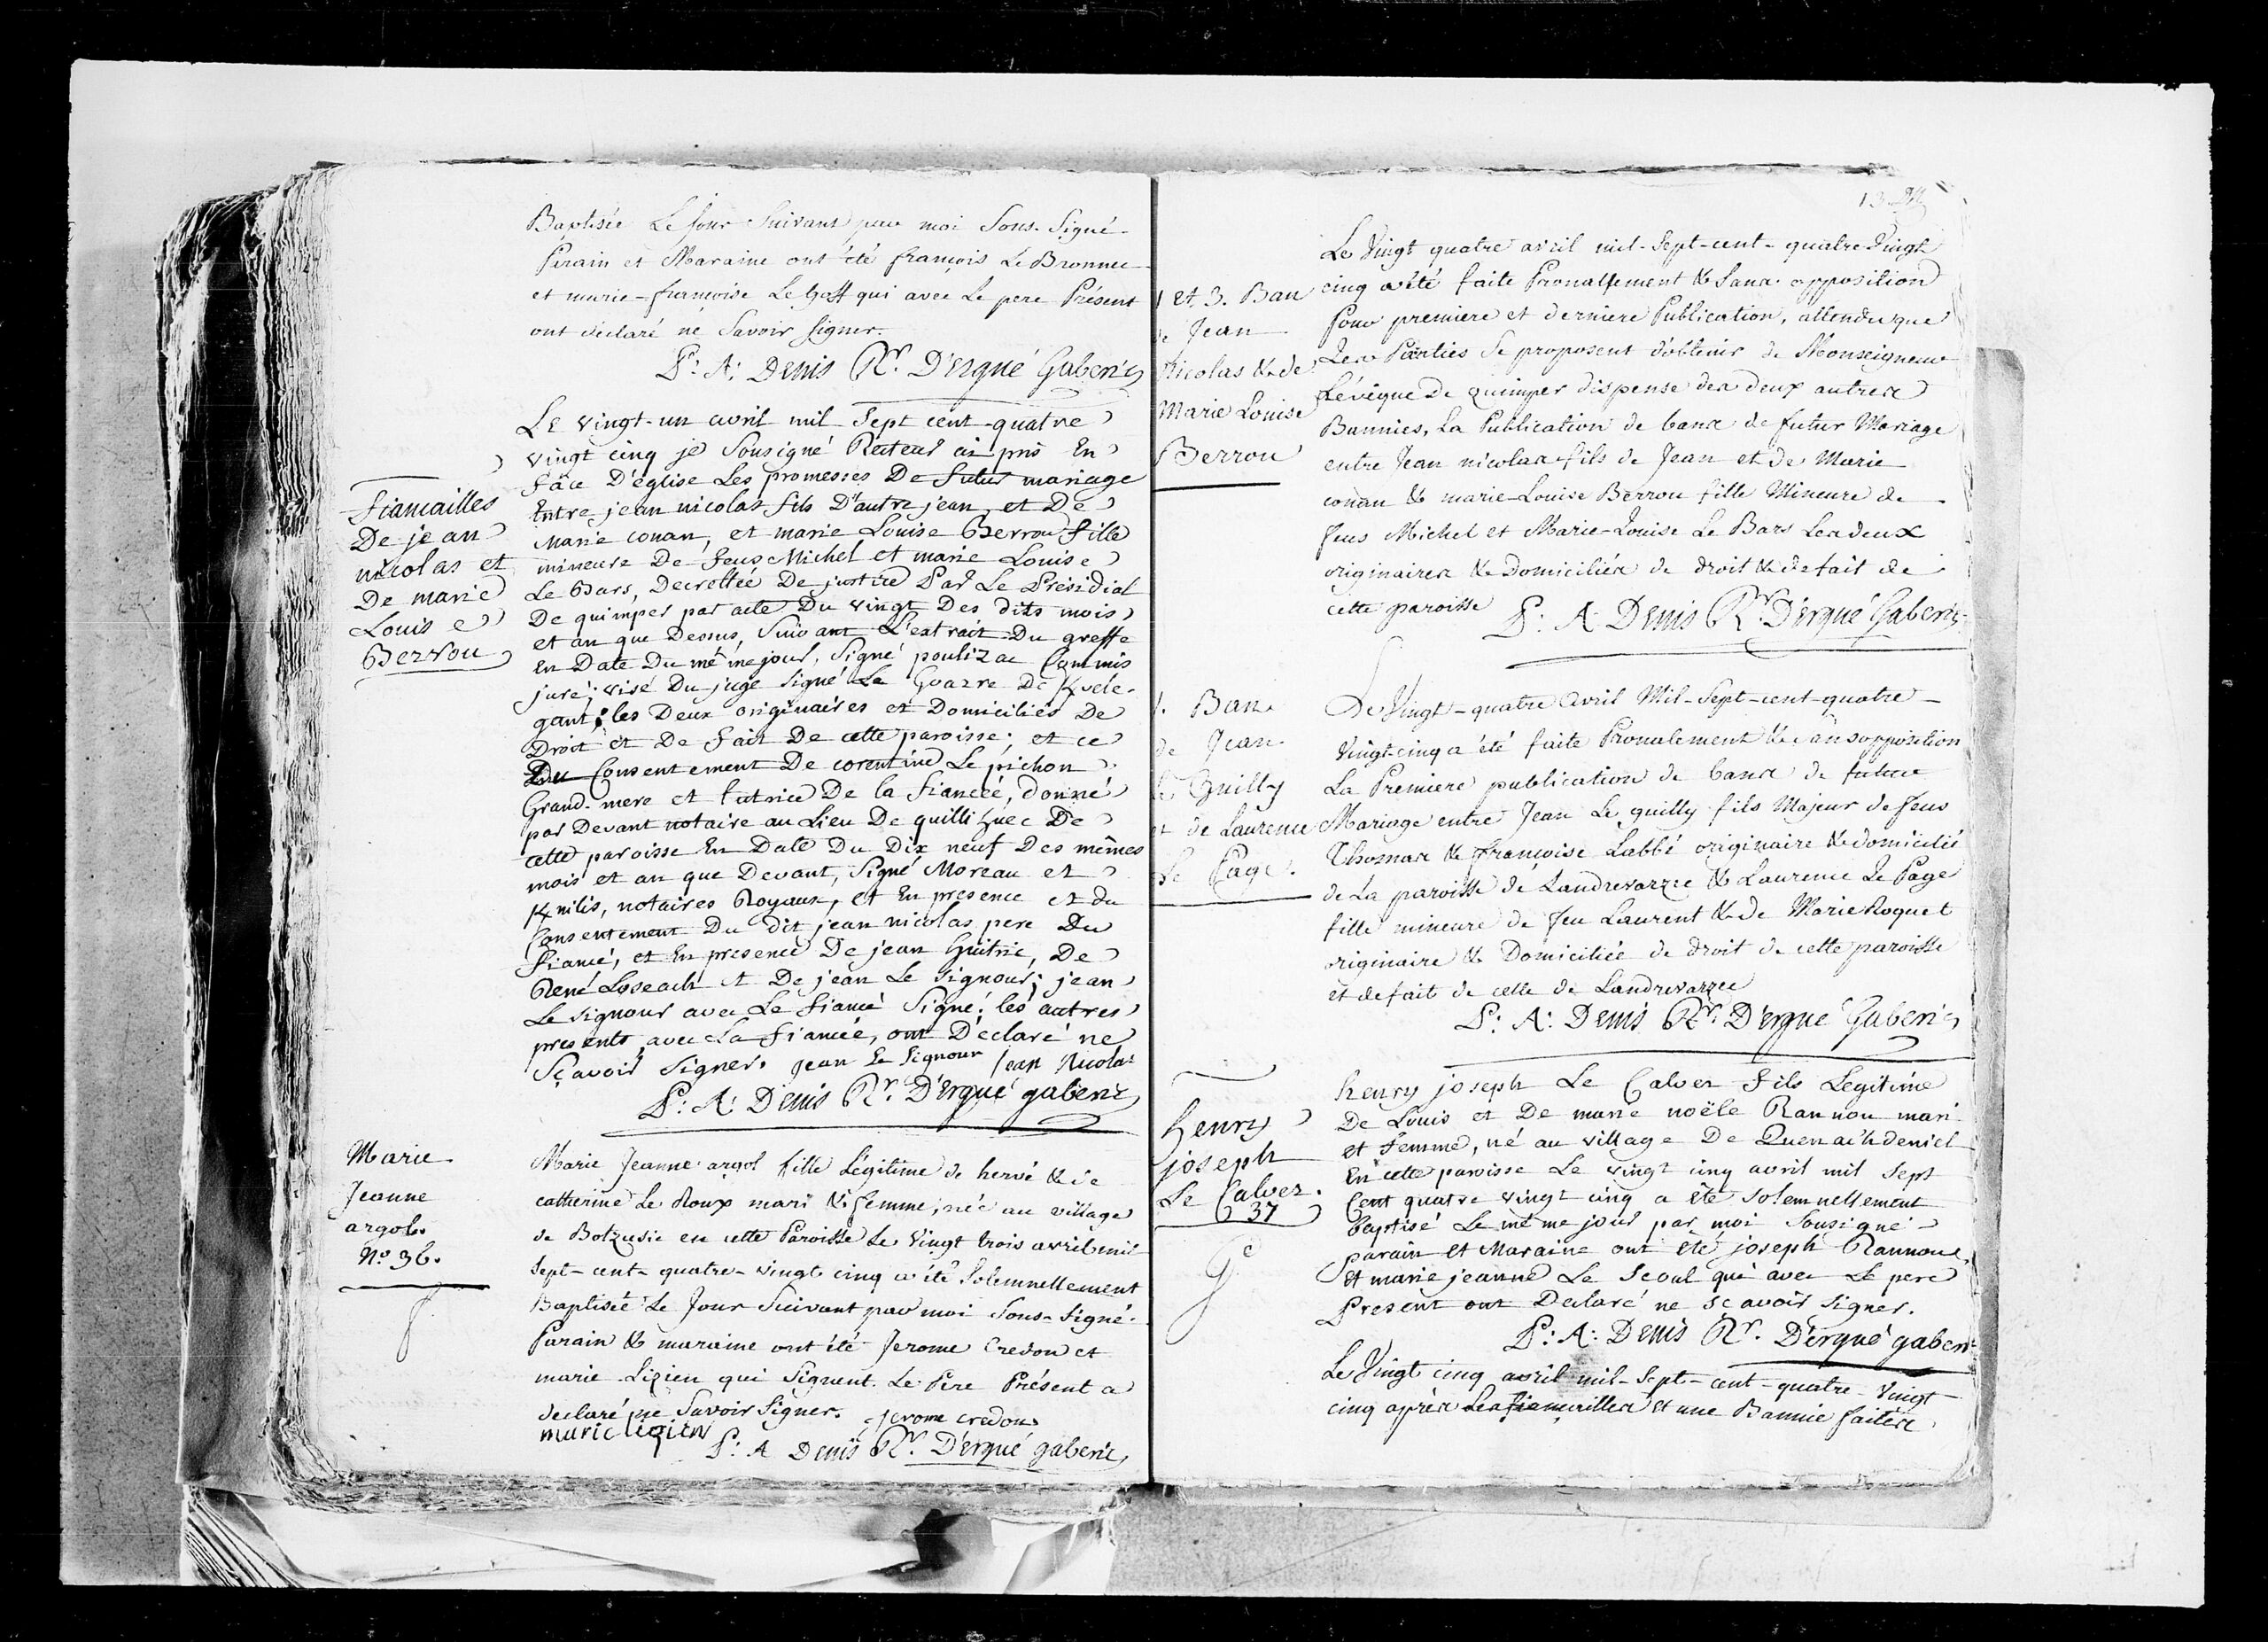 Baptisée Le Jour Suivant par moi Sous-Signé-
Parain et Maraine ont été françois Le Bronnec
et marie-françoise Le Goff qui avec Le pere Présent
ont déclaré ne Savoir signer.
P: A: Denis Rr. D'ergué Gaberic
Fiancailles
De jean
nicolas et
De marie
Louise
Berrou
Le vingt-un avril mil Sept cent-quatre
vingt cinq je Sousigné Recteur ai pris En
face D'église Les promesses De futur mariage
Entre jean nicolas fils D'autre jean et De
Marie conan, et marie Louise Berrou fille
mineure De feus Michel et marie Louise
Le Bars, Decrettée De justice Par Le Présidial
De quimper par acte Du vingt Des dits mois
et an que Dessus, Suivant L'extrait Du greffe
En Date Du même jour, Signé poulizac Commis
juré; visé Du juge signé Le Goazre De Kvele-
gant; les Deux originaires et Domiciliés De
Droit et De fait De cette paroisse; et ce
Du Consentement De corentine Le pichon
Grand-mere et tutrice De la fiancée, donné
par Devant notaire au Lieu De quillihuec De
cette paroisse En Date Du Dix neuf Des mêmes
mois et an que Devant, Signé Moreau et
Knilis, notaires Royaux, et En presence et du
Consentement Du dit jean nicolas pere Du
fiancé, et En presence De jean Guitric, De
René Loseach et De jean Le Signour; jean
Le signour avec Le fiancé Signé; les autres
presents avec La fiancée, ont Déclaré ne
Sçavoir Signer. jean Le signour jean Nicolas
P: A: Denis Rr. D'ergué gaberic
Marie
Jeanne
argol.
No. 36.
Marie Jeanne argol fille Légitime de hervé & de
catherine Le Roux mari & femme, née au village
de Botzudic en cette Paroisse Le Vingt trois avril mil
Sept-cent-quatre-vingt cinq a été Solemnellement
Baptisée Le Jour Suivant par moi Sous-Signé.
Parain & maraine ont été Jerome Credou et
marie-Lizien qui Signent. Le Pere Présent a
declaré ne Savoir Signer. jerome credou
marie lizien
P: A Denis Rr. D'ergué gaberic
13
1 et 3. Ban
de Jean
Nicolas & de
Marie Louise
Berrou
Le Vingt quatre avril mil-Sept-cent-quatre Vingt
cinq a été faite Pronallement & Sans opposition
Pour premiere et derniere Publication, attendu que
Les Parties Se proposent d'obtenir de Monseigneur
L'évêque De quimper dispense des deux autres
Bannies, La Publication de bans de futur Mariage
entre Jean nicolas fils de Jean et de Marie
conan & marie-Louise Berrou fille Mineure de
feus Michel et Marie-Louise Le Bars Les deux
originaires & Domiciliés de droit & de fait de
cette paroisse P: A. Denis Rr. D'ergué Gaberic
1. Ban
de Jean
Le Quilly
et de Laurence
Le Page.
Le Vingt-quatre Avril Mil-Sept-cent-quatre-
Vingt cinq a été faite Pronalement & Sans opposition
La Premiere publication de bans de futur
Mariage entre Jean Le quilly fils Majeur de feus
Thomas & françoise Labbé originaire & domicilié
de La paroisse de Landrevarzec & Laurence Le Page
fille mineure de feu Laurent & de Marie Roquet
originaire & Domiciliée de droit de cette paroisse
et de fait de celle de Landrevarzec
P: A: Denis Rr. D'ergué Gaberic
henry
joseph
Le Calvez.
37
henry joseph Le Calvez fils Legitime
De Louis et De marie noële Rannou mari
et femme, né au village De Quenac'hdeniel
En cette paroisse Le vingt cinq avril mil Sept
Cent quatre vingt cinq a été solemnellement
baptisé Le même jour par moi Sousigné
parain et Maraine ont été joseph Rannou
et marie jeanne Le Scoul qui avec Le pere
Present ont Declaré ne sçavoir Signer.
P: A: Denis Rr. D'ergué gaberic
Le Vingt cinq avril mil-Sept-cent-quatre-Vingt-
cinq après Les fiancailles et une Bannie faites